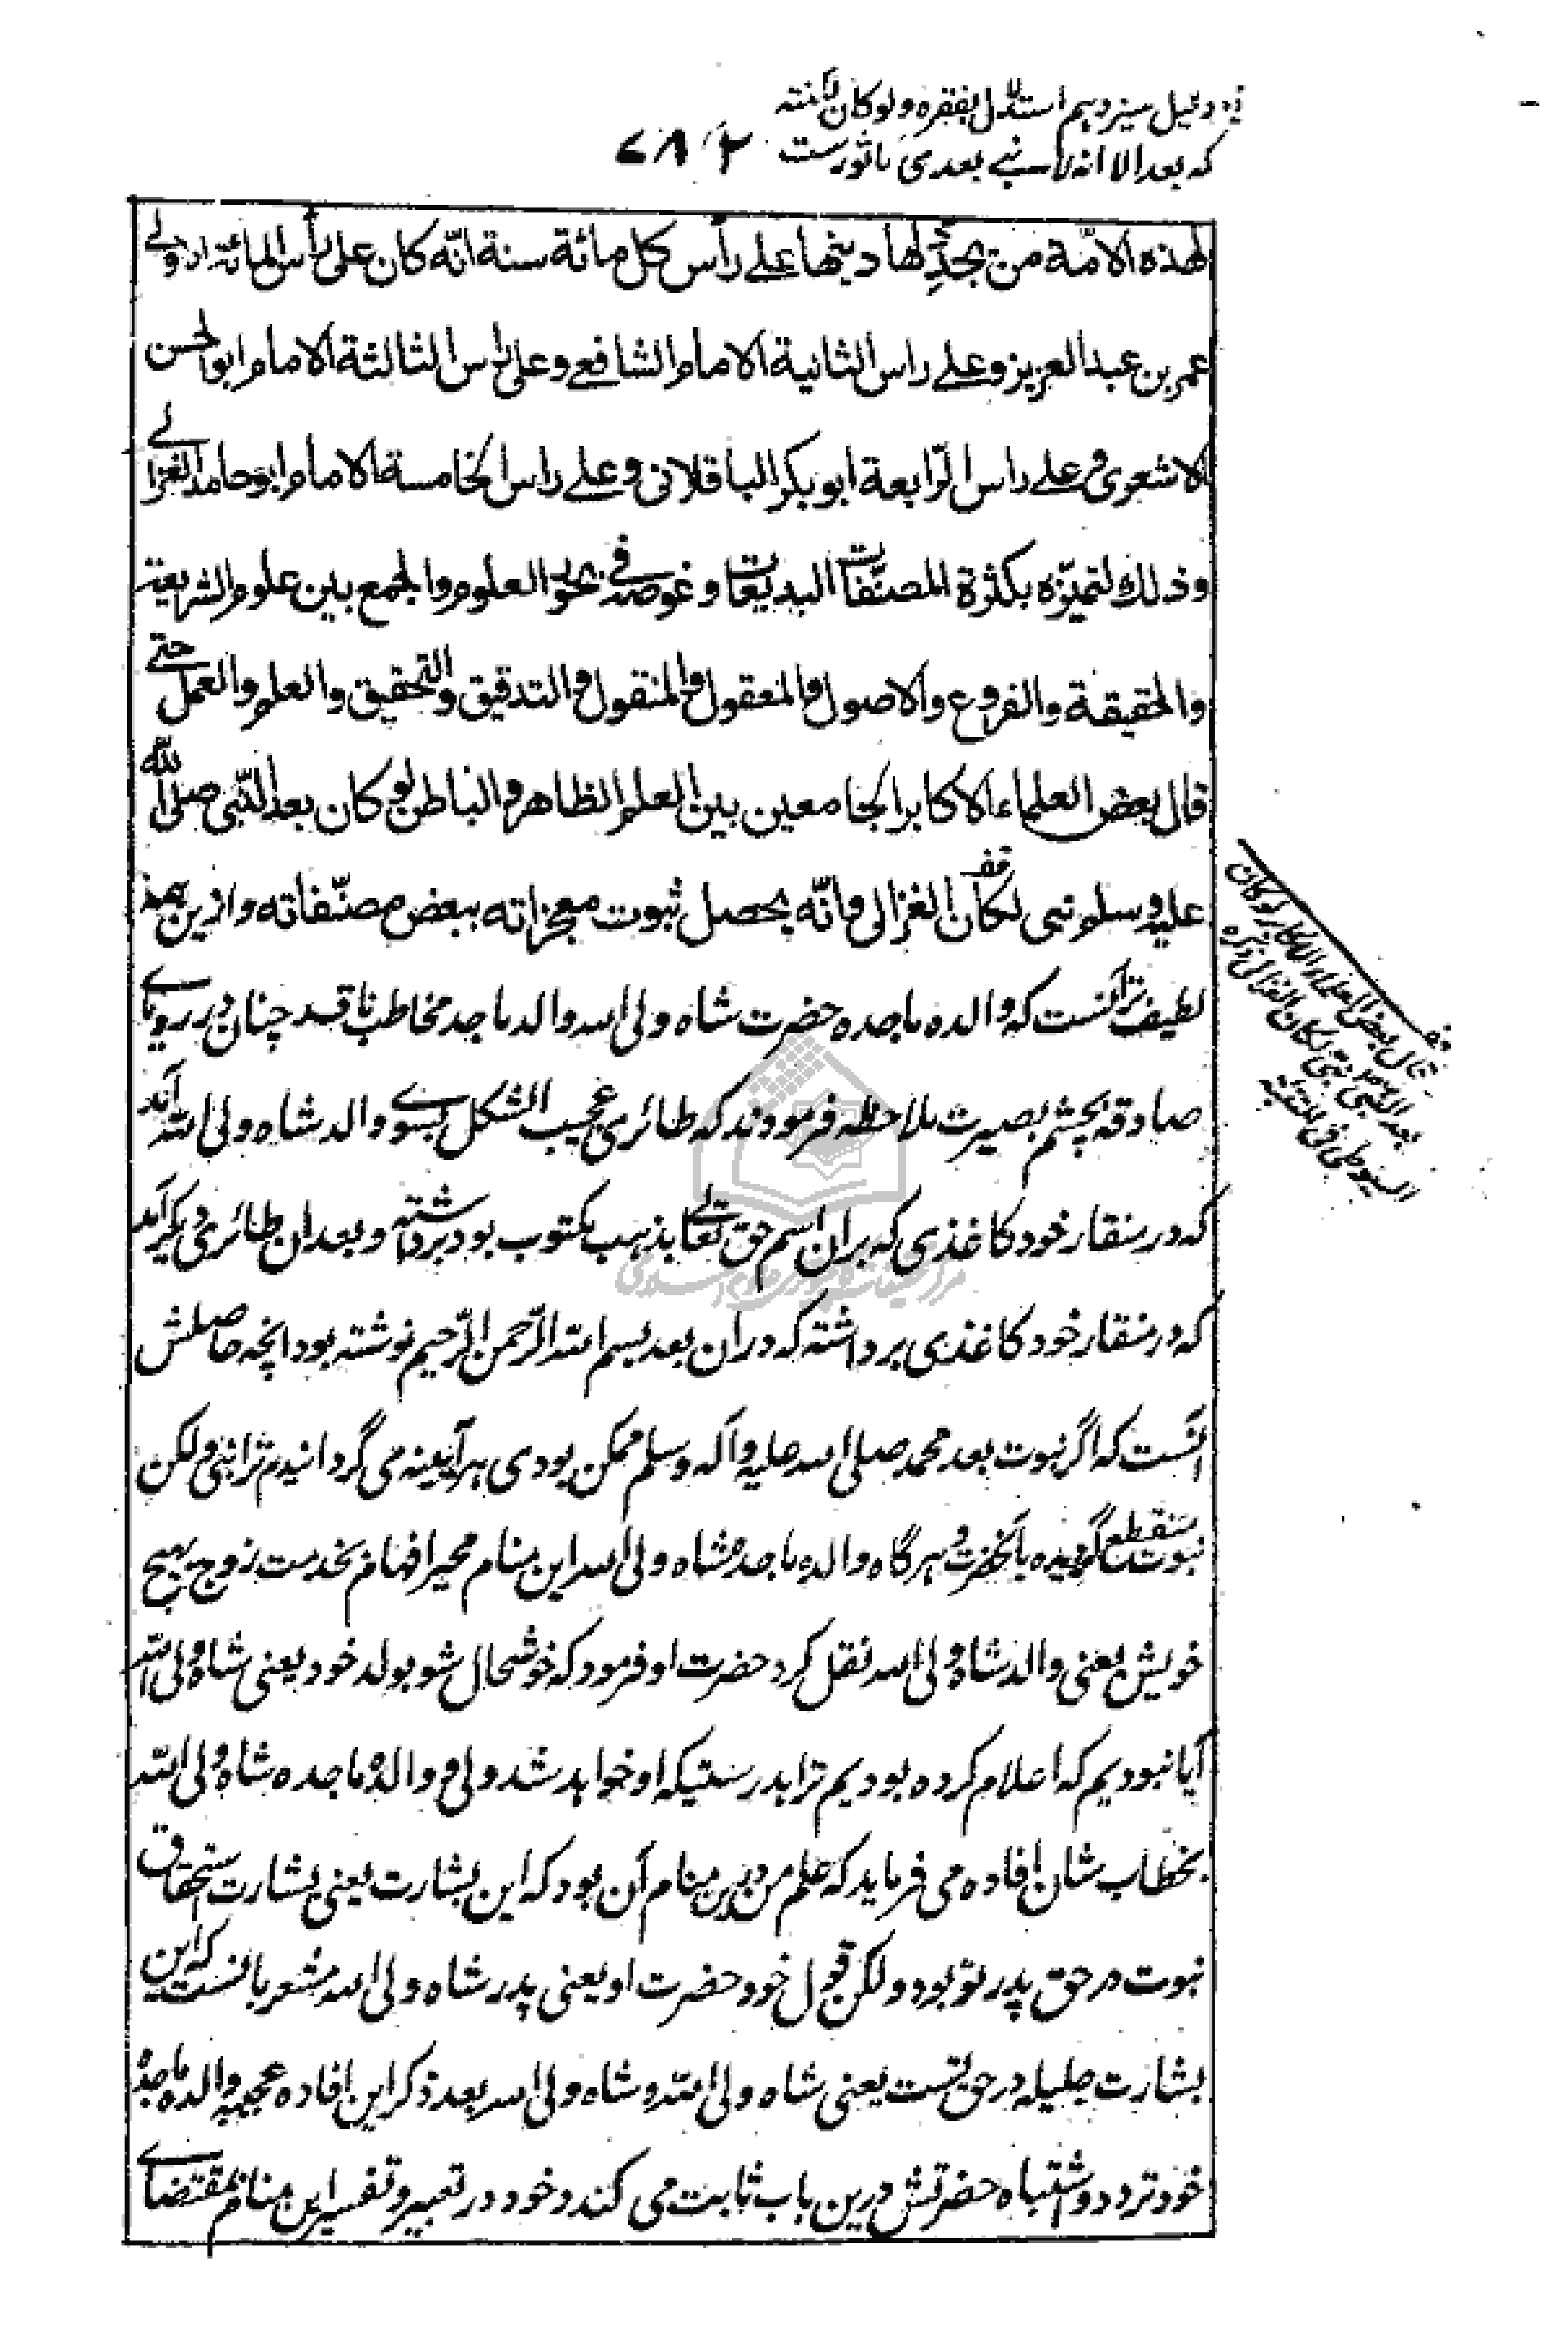 دلیل سیزدهم استدلال بفقره ولو کان لکنته
که بعد الا انه لا نبی بعدی ماثورست
۷۸۲
لهذه الامّة من یجدّد لها دینها علی رأس کل مائة سنة انّه کان علی رأس المائة الاولی
عمر بن عبد العزیز و علی راس الثانیة الامام الشافعی و علی راس الثالثة الامام ابو الحسن
الاشعری و علی راس الرّابعة ابو بکر الباقلانی و علی راس الخامسة الامام ابو حامد الغزالی
وذلک لتمیّزه بکثرة المصنّفات البدیعات و غوصه فی بحور العلوم والجمع بین علوم الشریعة
والحقیقة والفروع والاصول والمعقول والمنقول والتدقیق والتحقیق والعلم والعمل حتی
قال بعض العلماء الاکابر الجامعین بین العلم الظاهر والباطن لو کان بعد النّبی صلی الله
علیه وسلم نبی لکان الغزالی وانّه یحصل ثبوت معجزاته ببعض مصنّفاته وازین همه
لطیف‌تر آنست که والده ماجده حضرت شاه ولی الله والد ماجد مخاطب ناقد چنان در رویای
صادقه بچشم بصیرت ملاحظه فرمودند که طائری عجیب الشکل بسوی والد شاه ولی الله آمد
که در منقار خود کاغذی که بران اسم حق تعالی بذهب مکتوب بود برداشته و بعد ان طائری دیگر آمد
که در منقار خود کاغذی برداشته که دران بعد بسم الله الرّحمن الرّحیم نوشته بود انچه حاصلش
انست که اگر نبوت بعد محمد صلی الله علیه وآله وسلم ممکن بودی هر آیینه می گردانیدم ترا نبی ولکن
نبوت منقطع گردیده بآنحضرت و هرگاه والده ماجده شاه ولی الله این منام محیر افهام بخدمت زوج بهیج
خویش یعنی والد شاه ولی الله نقل کرد حضرت او فرمود که خوشحال شو بولد خود یعنی شاه ولی الله
آیا نبودیم که اعلام کرده بودیم ترا بدرستیکه او خواهد شد ولی و والده ماجده شاه ولی الله
بخطاب شان افاده می فرماید که علم من درین منام آن بود که این بشارت یعنی بشارت استحقاق
نبوت در حق پدر تو بود و لکن قول خود حضرت او یعنی پدر شاه ولی الله مشعر بانست که این
بشارت جلیله در حق تست یعنی شاه ولی الله و شاه ولی الله بعد ذکر این افاده عجیبه والده ماجده
خود تردد و اشتباه حضرتش درین باب ثابت می کند و خود در تعبیر و تفسیر این منام بمقتضای
قف
قال بعض العلماء الاکابر لو کان
بعد النبی نبی لکان الغزالی ذکره
السیوطی فی التنبئة